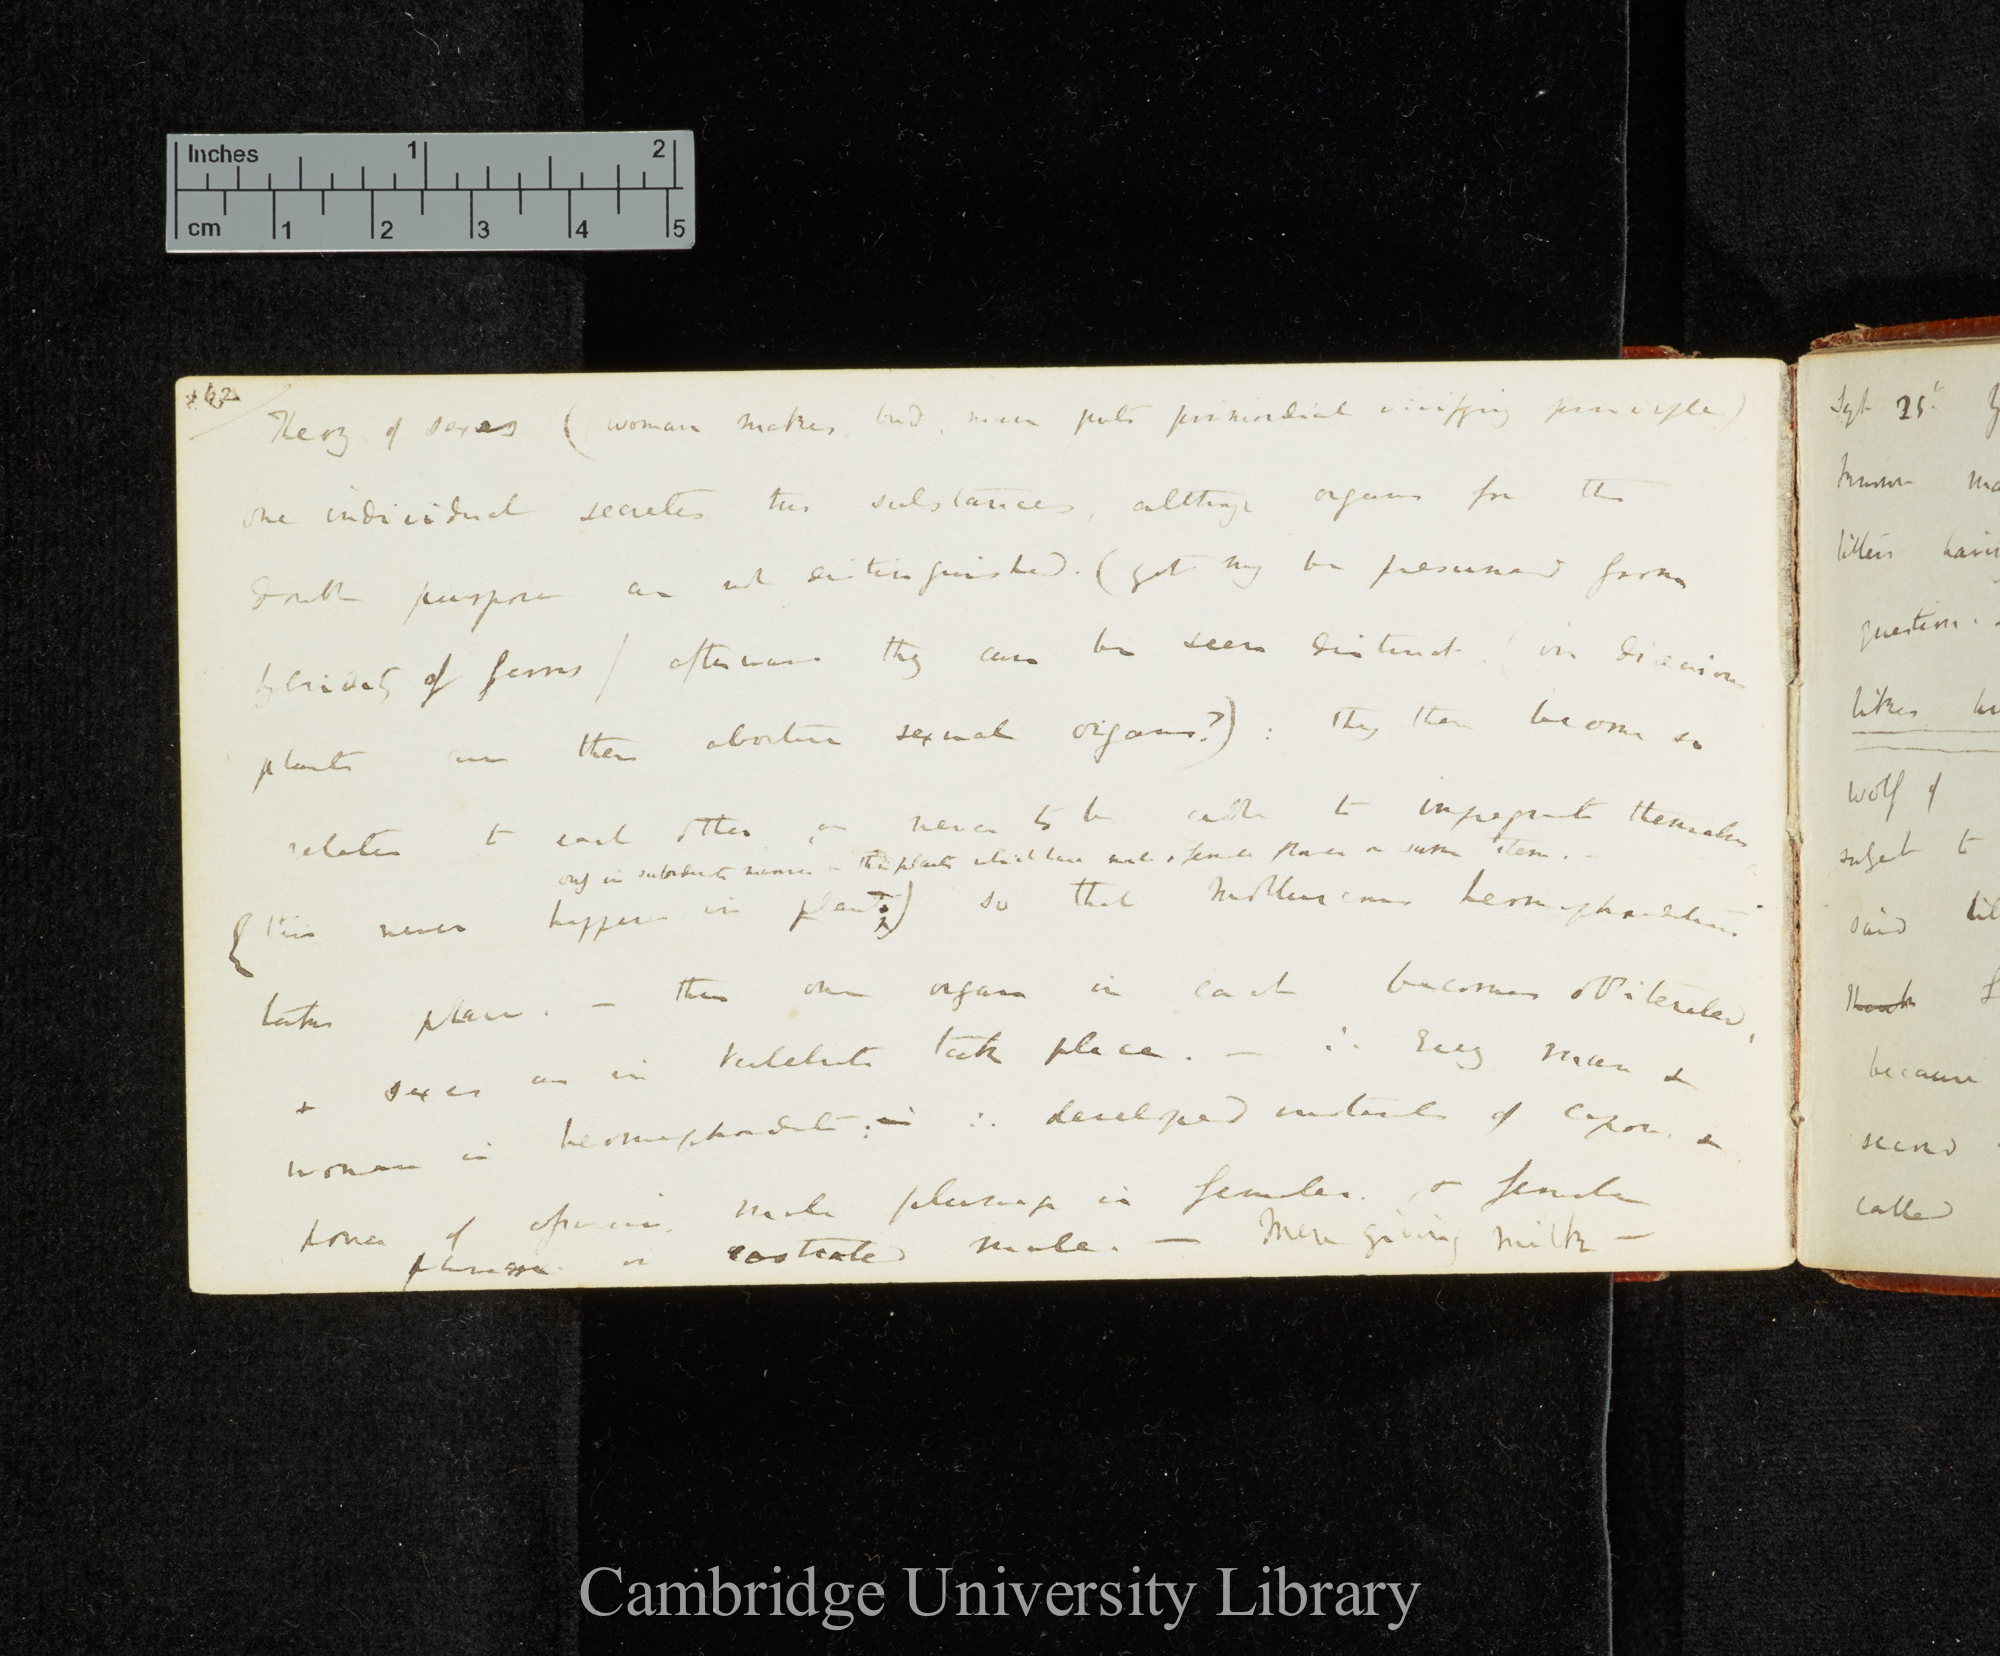 Inches 1 2
cm 1 2 3 4 5
162
Theory of sexes (woman makes bud, man puts primordial vivifying principle)
one individual secretes two substances, although organs for the
double purpose are not distinguished. (yet may be presumed from
hybridity of ferns) afterwards they can be seen distinct (in dioecious
plants are there abortive sexual organs?): they then become so
related to each other as never to be able to impregnate themselves
only in subordinate manner in the plants which have male & female flower on same stem. -
(this never happens in plants) so that Molluscous hermaphroditism
takes place. — thus one organ in each becomes obliterated,
& sexes as in Vertebrate take place. — ∴ Every man &
woman is hermaphrodite: ∴ developed instances of capon &
power of assuming male plumage in females. & female
plumage in castrated male. — Men giving milk —
Sept 25t
known
litters
question.
likes
wolf of
subject to
said
Think
because
second
called
Cambridge University Library